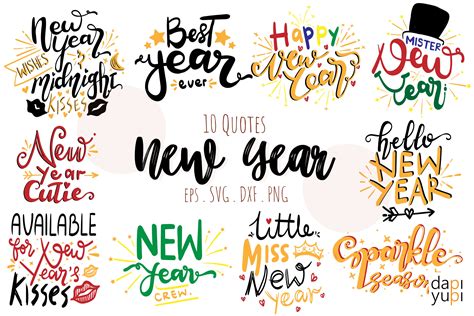 New
Year
WISHES
midnight
KISSES
Best
year
ever
Happy
New
Year
MISTER
New
Year
New
Year
Cutie
10 QUOTES
new year
eps . SVG . DXF . PNG
hello
NEW
YEAR
AVAILABLE
for New
Year's
Kisses
NEW
Year
CREW.
little
MISS
New
year
Sparkle
season
dapi
yupi